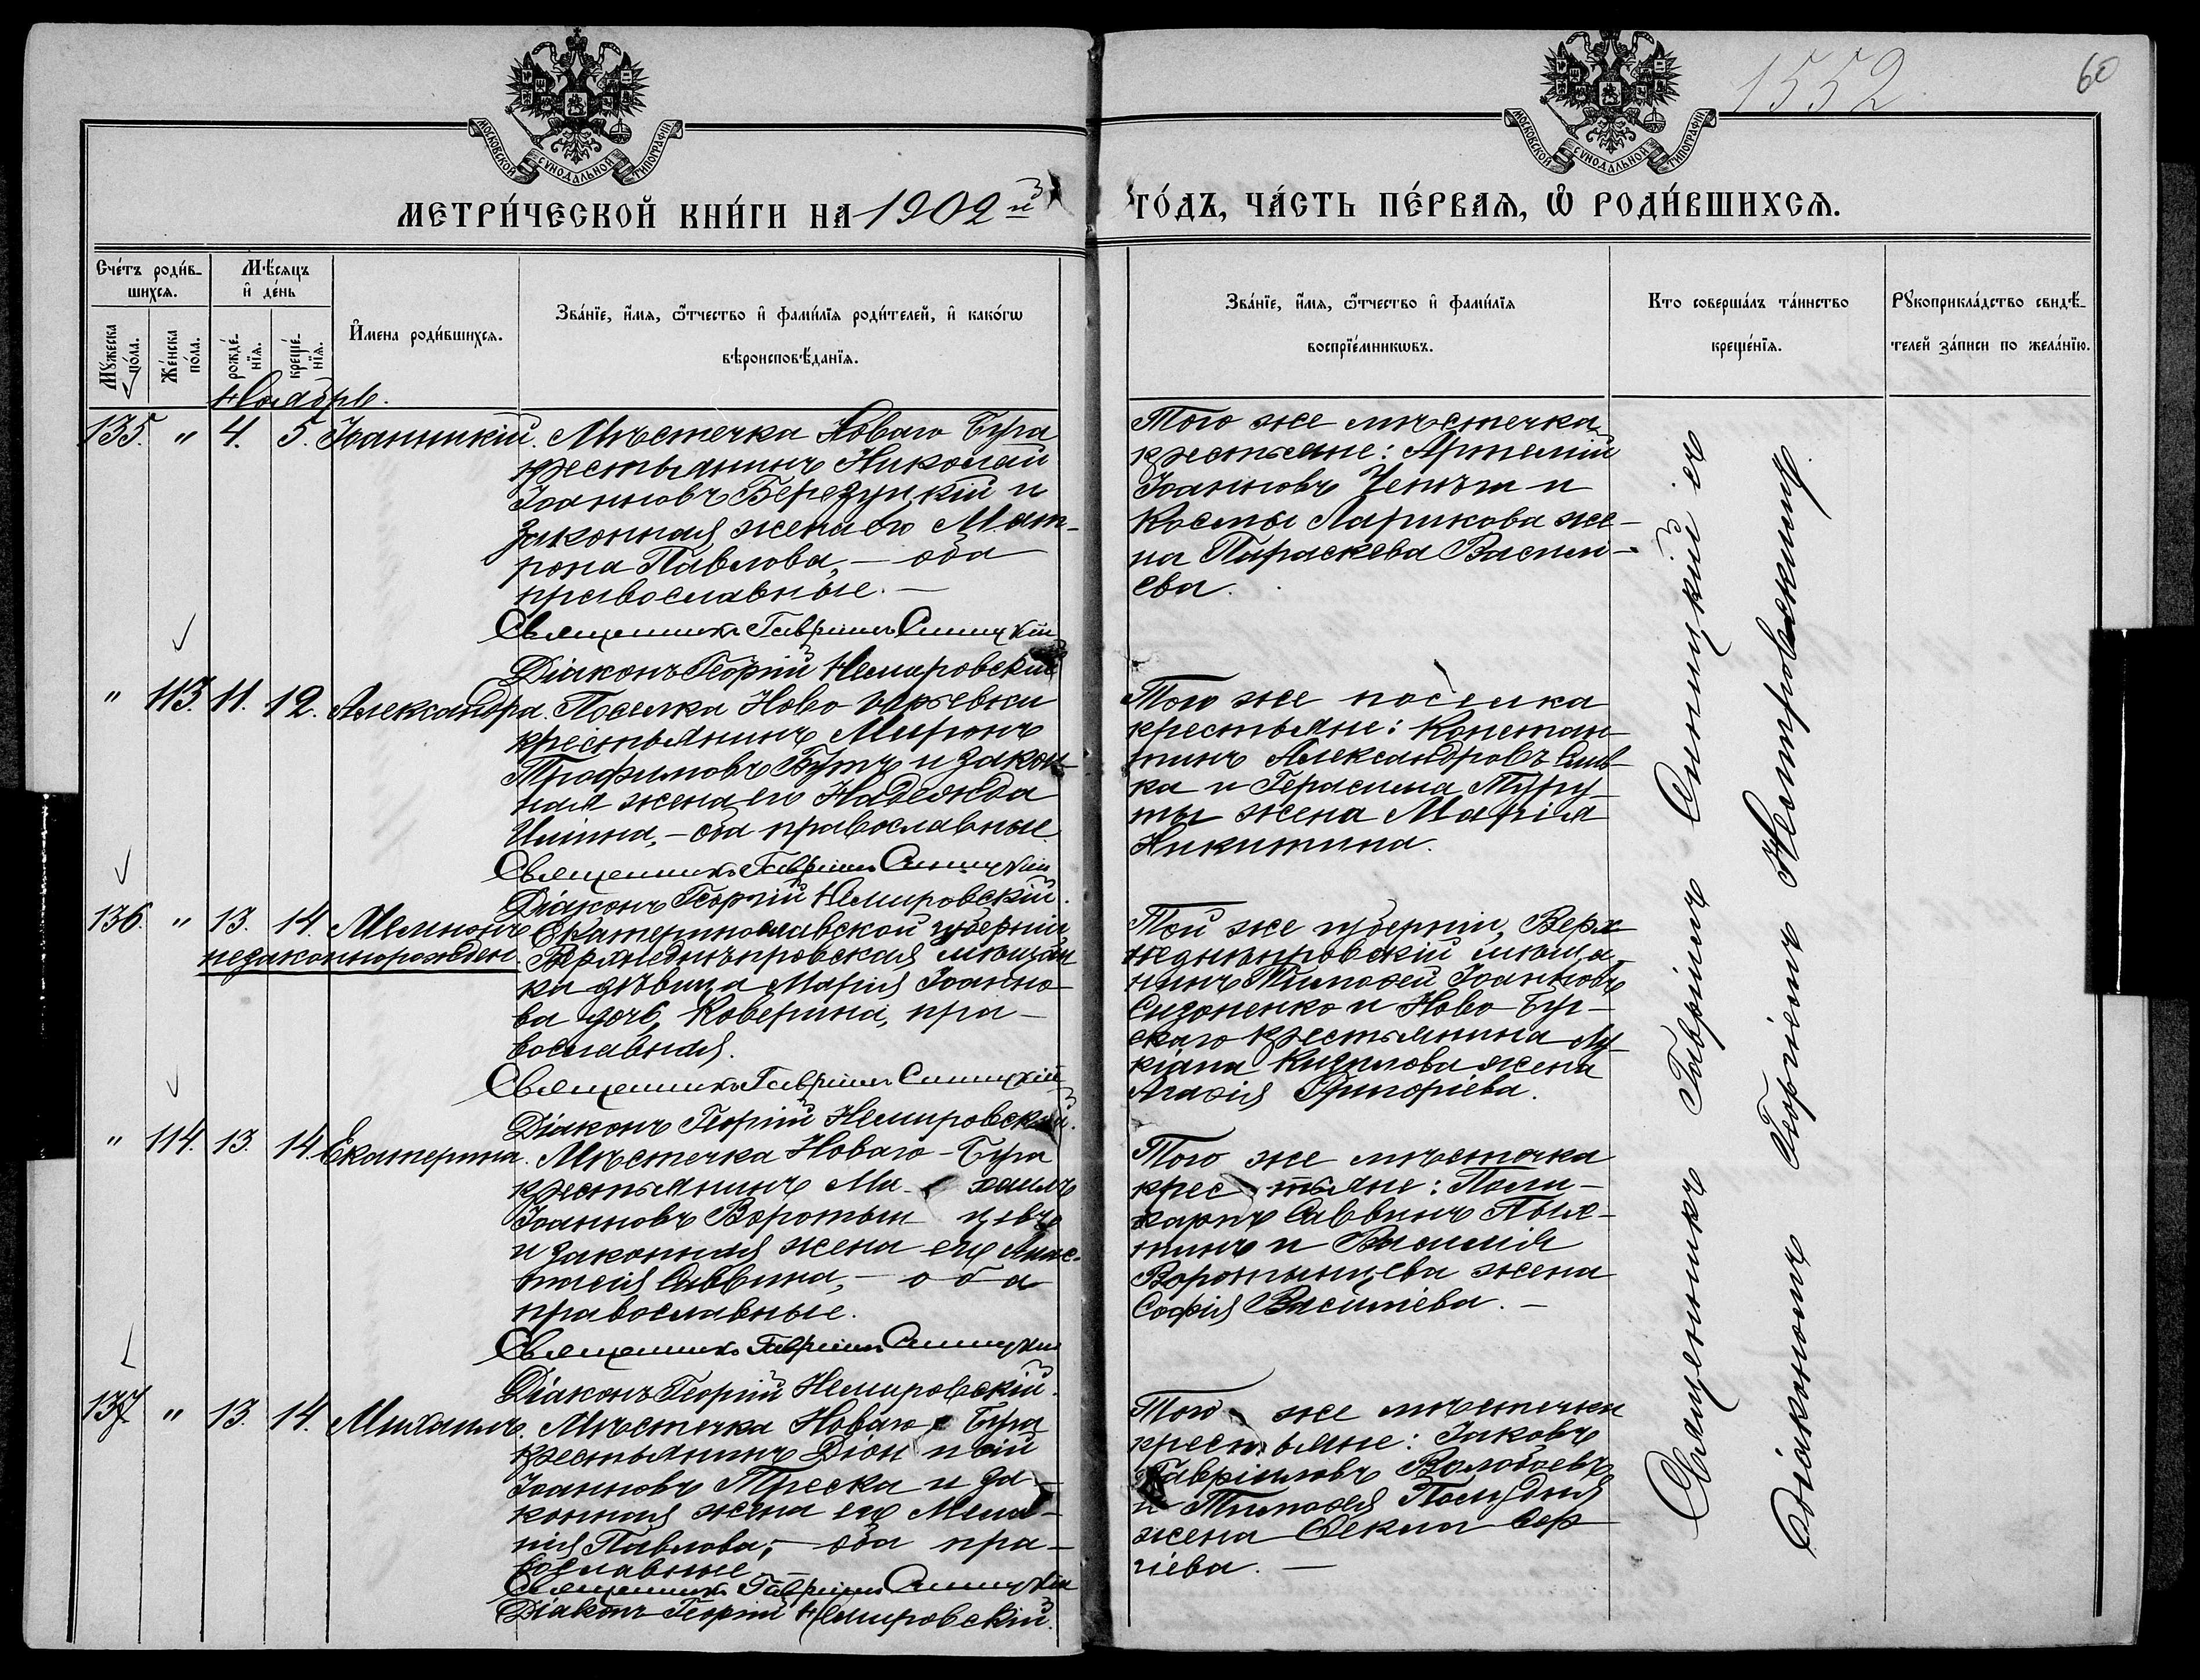 1552
60
МОСКОВСКОЙ СѴНОДАЛЬНОЙ ТИПОГРАФІИ
МОСКОВСКОЙ СѴНОДАЛЬНОЙ ТИПОГРАФІИ
МЕТРИ́ЧЕСКОЙ КНИ́ГИ НА 1902й ГО́ДЪ, ЧА́СТЬ ПЕ́РВАѦ, Ѡ РОДИ́ВШИХСѦ.
Счéтъ роди́в-
шихсѧ.
Мꙋжеска по́ла.
Же́нска по́ла.
Мѣ́сѧцъ
и҆ де́нь
рожде́-
нїѧ.
креще́-
нїѧ.
И҆мена роди́вшихсѧ.
Зва́нїе, и҆́мѧ, ѻ҆́тчество и҆ фами́лїѧ роди́телей, и҆ како́гѡ
вѣроисповѣ́данїѧ.
Зва́нїе, и҆́мѧ, ѻ҆́тчество и҆ фами́лїѧ
воспрїе́мникѡвъ.
Кто соверша́лъ та́инство
креще́нїѧ.
Рꙋкоприкла́дство свидѣ́-
телей за́писи по жела́нїю.
Ноябрь.
135. " 4. 5. Іоанникій. Мѣстечка Новаго Буга
крестьянинъ Николай
Іоанновъ Березуцкій и
законная жена его Мат-
рона Павлова, — оба
православные. —
Священникъ Гавріилъ Синицкій
Діаконъ Георгій Немировскій
Того же мѣстечка
крестьяне: Артемій
Іоанновъ и
Космы Ларикова же-
на Параскева Василі-
ева.
" 113. 11. 12. Александра. Поселка Ново-Юрьевки
крестьянинъ Миронъ
Трофимовъ Бутъ и закон-
ная жена его Надежда
— оба православные
Священникъ Гавріилъ Синицкій
Діаконъ Георгій Немировскій.
Того же поселка
крестьяне: Констан-
тинъ Александровъ Слив-
ка и Герасима
жена Марія
Никитина.
136. " 13. 14. Мемнонъ
незаконнорожден.
Екатеринославской губерніи
Верхнеднѣпровская мѣщан-
ка дѣвица Марія Іоанно-
ва дочь Коверина, пра-
вославная.
Священникъ Гавріилъ Синицкій
Діаконъ Георгій Немировскій.
Той же губерніи, Верх-
недніпровскій мѣща-
нинъ Тимоѳей Іоанновъ
Сидоненко и Ново-Буг-
скаго крестьянина Лу-
кіана жена
Агаѳія Григоріева.
" 114. 13. 14. Екатерина. Мѣстечка Новаго-Буга
крестьянинъ Ми-хаилъ
Іоанновъ Воротынцовъ
и законная жена его Анас-
тасія Саввина, — оба
православные.
Священникъ Гавріилъ Синицкій
Діаконъ Георгій Немировскій.
Того же мѣстечка
крестьяне: Поли-
карпъ Саввинъ Пых-
тинъ и Василія
Воротынцева жена
Софія Василіева. —
137. " 13. 14. Михаилъ. Мѣстечка Новаго Буга
крестьянинъ Діонисій
Іоанновъ Треска и за-
конная жена его Мела-
нія Павлова; — оба пра-
вославные
Священникъ Гавріилъ Синицкій
Діаконъ Георгій Немировскій.
Того же мѣстечка
крестьяне: Іаковъ
Гавріиловъ Волобоевъ
и Тимоѳея
жена Ѳекла Сер-
гіева. —
Священникъ Гавріилъ Синицкій съ
Діакономъ Георгіемъ Немировскимъ.